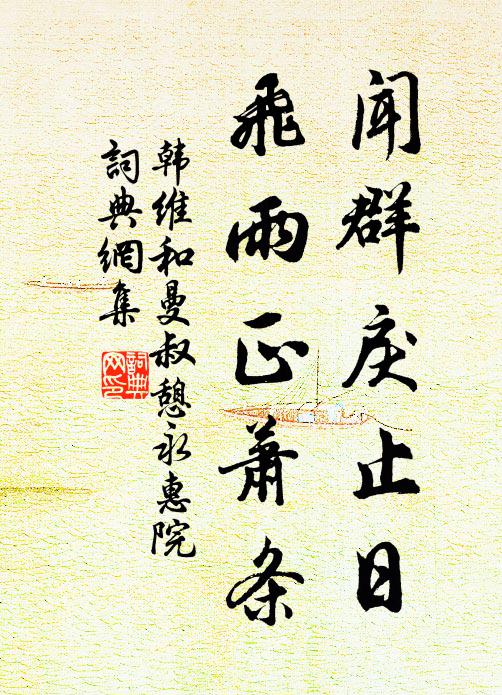 聞群戾止日
飛雨正蕭条
韩維和曼叔憩永惠院
詞典網集
詞典网印